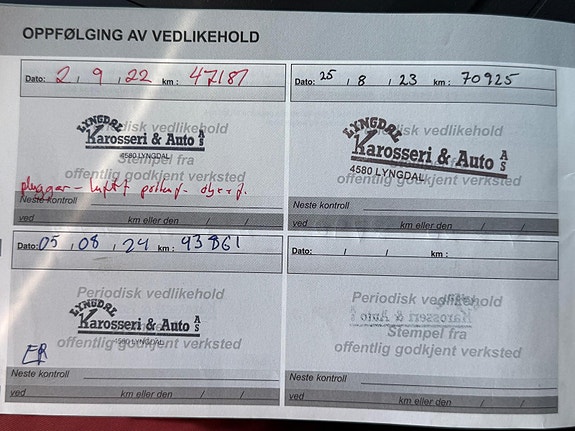 OPPFØLGING AV VEDLIKEHOLD
Dato: 2 / 9 / 22 km : 47187
Periodisk vedlikehold
LYNGDAL
Karosseri & Auto AS
4580 LYNGDAL
Stempel fra
offentlig godkjent verksted
Neste kontroll
ved km eller den / /
Dato: 25 / 8 / 23 km : 70925
Periodisk vedlikehold
LYNGDAL
Karosseri & Auto AS
4580 LYNGDAL
Stempel fra
offentlig godkjent verksted
Neste kontroll
ved km eller den / /
Dato: 05 / 08 / 24 km : 93861
Periodisk vedlikehold
LYNGDAL
Karosseri & Auto AS
4580 LYNGDAL
offentlig godkjent verksted
Neste kontroll
ved km eller den / /
Dato: / / km :
Periodisk vedlikehold
Stempel fra
offentlig godkjent verksted
Neste kontroll
ved km eller den / /